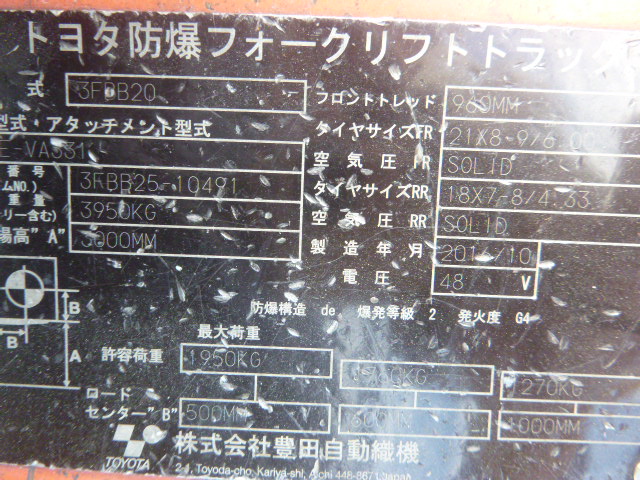 トヨタ防爆フォークリフトトラック
式 3FBB20 フロントトレッド 960MM
型式・アタッチメント型式 タイヤサイズFR 21X8-9/6.00
VAS31 空気圧FR SOLID
番号 3FBB25-10491 タイヤサイズRR 18X7-8/4.33
重量 3950KG 空気圧RR SOLID
(リー含む) 製造年月
揚高"A" 3000MM 電圧 48 V
防爆構造 de 爆発等級 2 発火度 G4
B
B A
最大荷重
許容荷重 1950KG 1270KG
ロード
センター"B" 500MM 600MM 1000MM
TOYOTA 株式会社豊田自動織機
2-1, Toyoda-cho, Kariya-shi, Aichi 448-8671 Japan